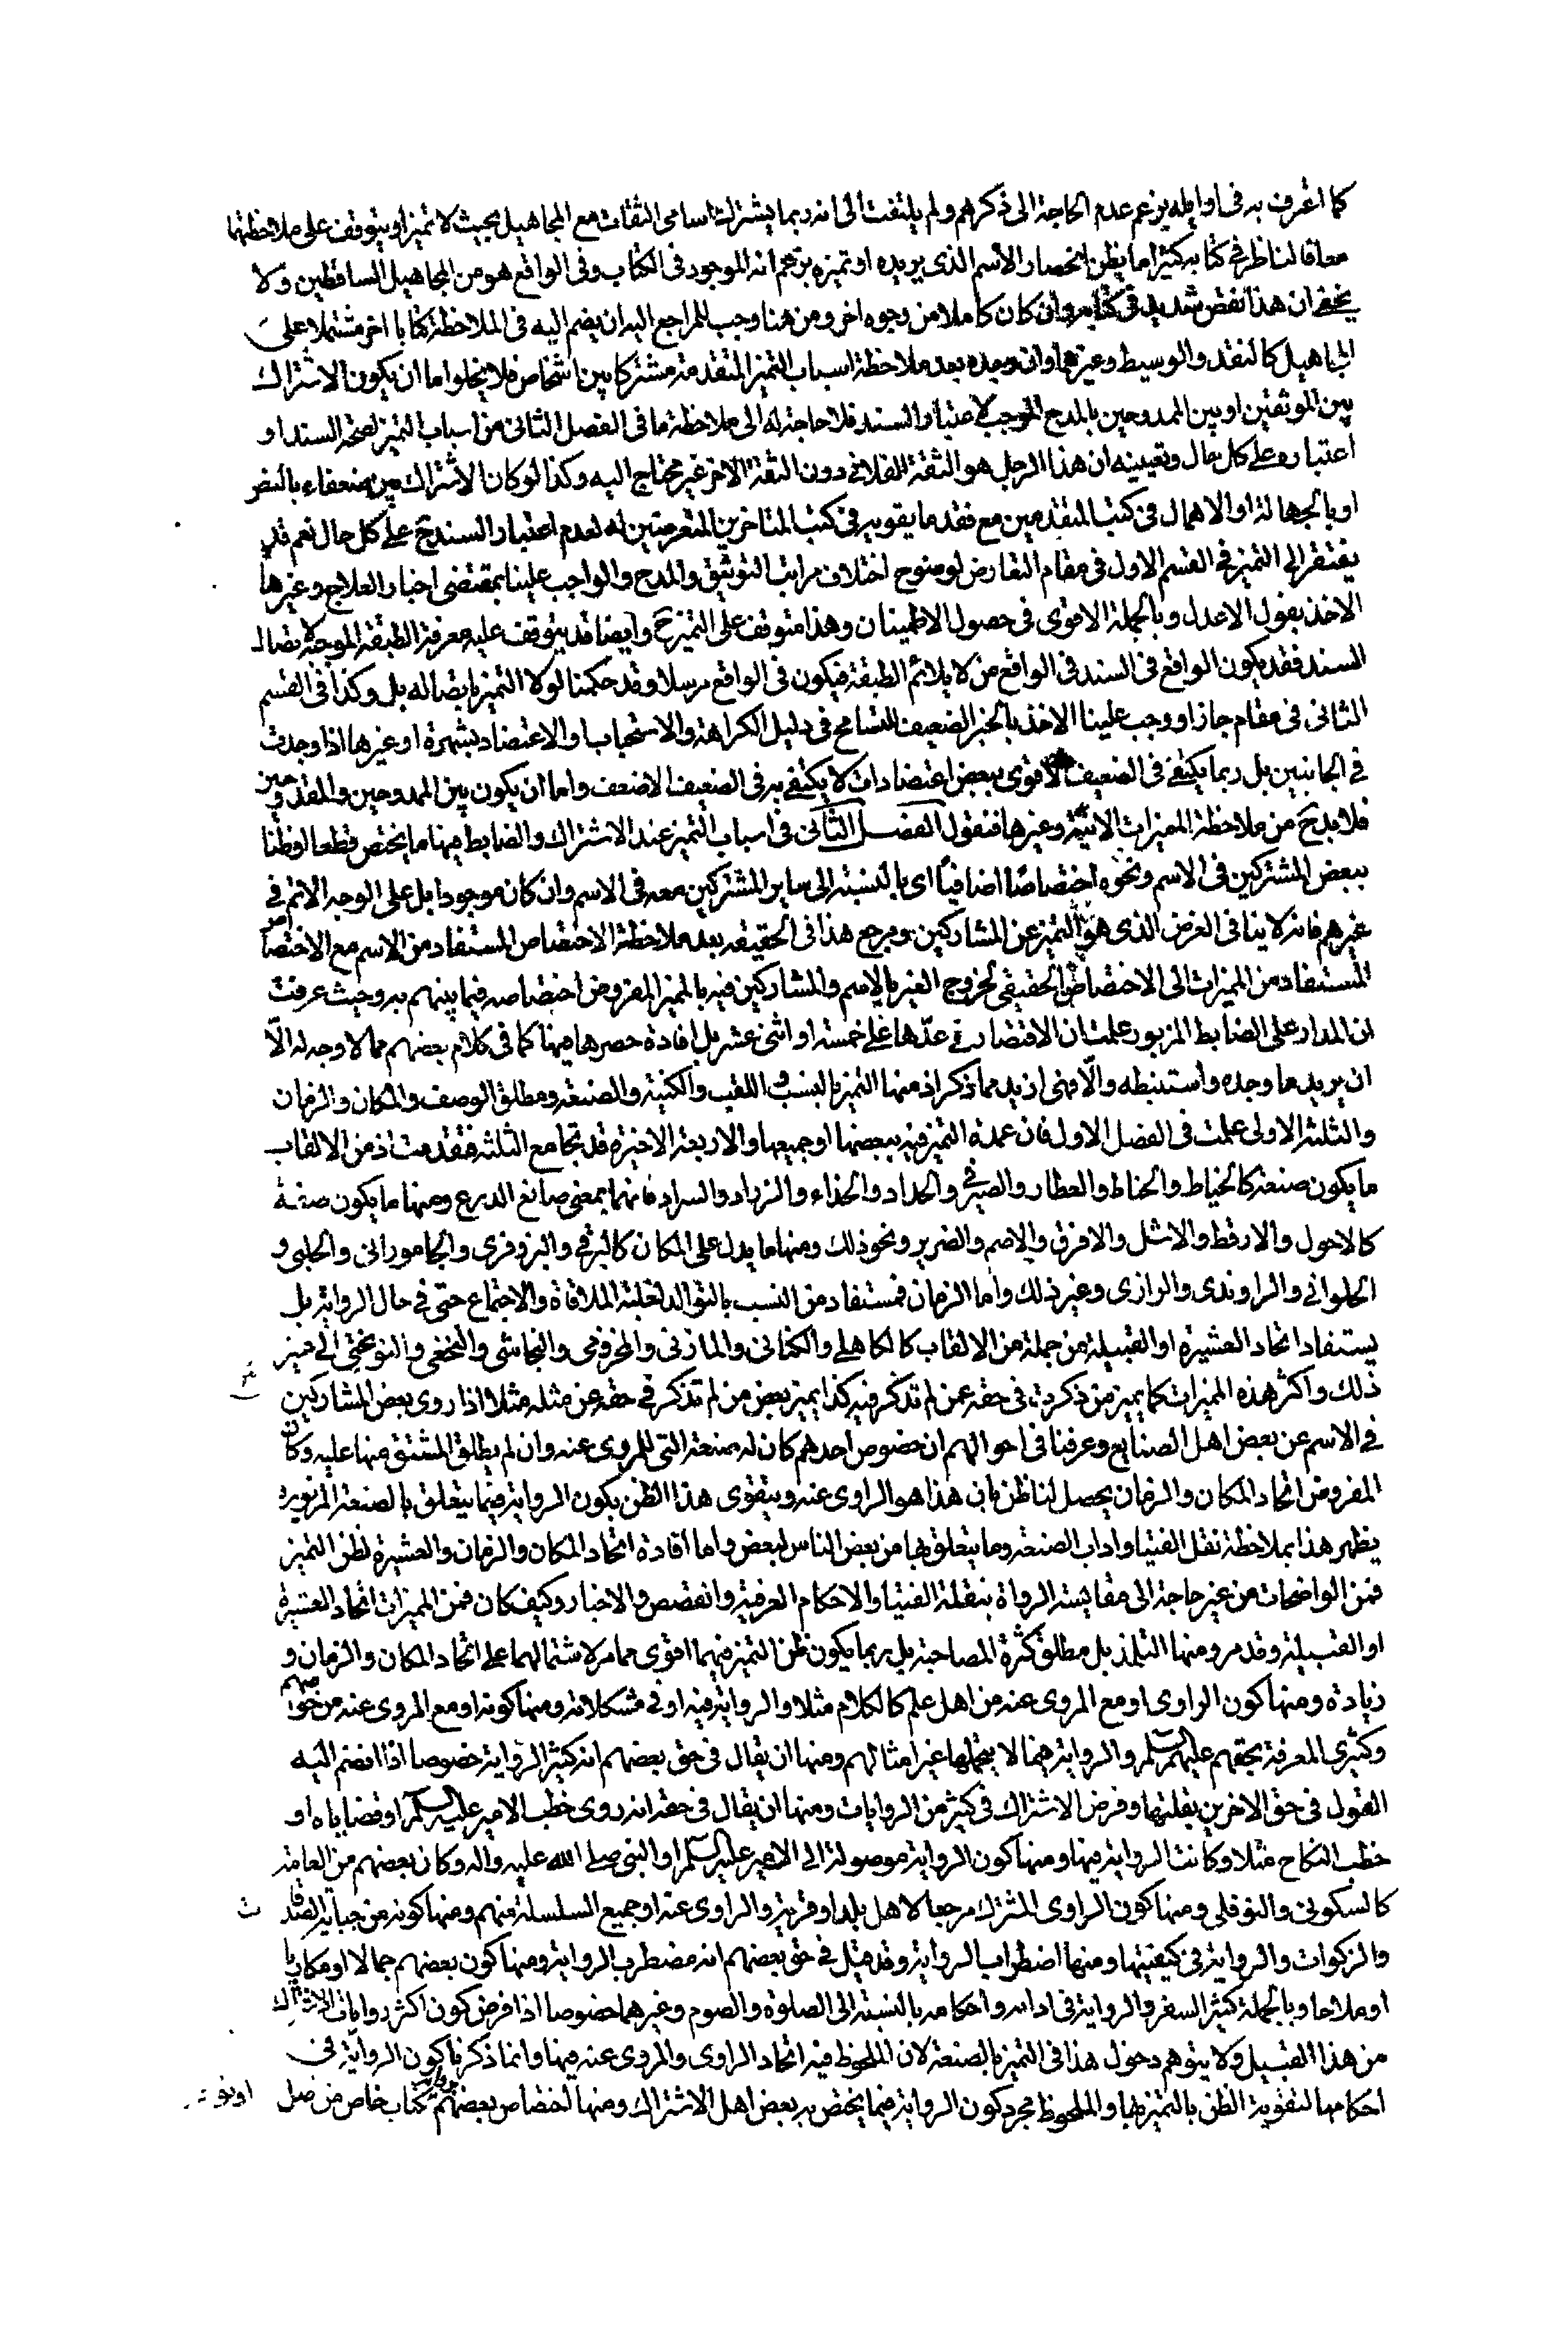 كما اعترف به فى اوايله بزعم عدم الحاجة الى ذكرهم ولم يلتفت الى انه ربما يشترك اسامى الثقات مع المجاهيل بحيث لا تميز او يتوقف على ملاحظتهما
معا فالناظر فى كتابه كثيرا ما يظن انحصار الاسم الذى يريده او تميزه بزعم انه الموجود فى الكتاب وفى الواقع هو من المجاهيل الساقطين ولا
يخفى ان هذا نقص شديد فى كتابه وان كان كاملا من وجوه اخر ومن هنا وجب للمراجع اليه ان يضم اليه فى الملاحظة كتابا اخر مشتملا على
المجاهيل كالنقد والوسيط وغيرهما وان وجده بعد ملاحظة اسباب التميز المتقدمة مشتركا بين اشخاص فلا يخلوا اما ان يكون الاشتراك
بين الموثقين او بين الممدوحين بالمدح الموجب لاعتبار السند فلا حاجة له الى ملاحظة ما فى الفصل الثانى من اسباب التميز لصحة السند او
اعتباره على كل حال وتعيينه ان هذا الرجل هو الثقة الفلانى دون الثقة الاخر غير محتاج اليه وكذا لو كان الاشتراك بين ضعفاء بالنص
او بالجهالة او الاهمال فى كتب المتقدمين مع فقد ما يقويه فى كتب المتاخرين المتعرضين له لعدم اعتبار السند ح على كل حال نعم قد
يفتقر الى التميز فى القسم الاول فى مقام التعارض لوضوح اختلاف مراتب التوثيق والمدح والواجب علينا بمقتضى اخبار العلاج وغيرها
الاخذ بقول الاعدل وبالجملة الاقوى فى حصول الاطمينان وهذا متوقف على التميز ح وايضا قد يتوقف عليه معرفة الطبقة الموجبة لاتصال
السند فقد يكون الواقع فى السند فى الواقع من لا يلائم الطبقة فيكون فى الواقع مرسلا وقد حكمنا لولا التميز باتصاله بل وكذا فى القسم
الثانى فى مقام جاز او وجب علينا الاخذ بالخبر الضعيف للتسامح فى دليل الكراهة والاستحباب او الاعتضاد بشهرة او غيرها اذا وجدت
فى الجانبين بل ربما يكتفى فى الضعيف الاقوى ببعض اعتضادات لا يكتفى به فى الضعيف الاضعف واما ان يكون بين الممدوحين والمقدوحين
فلا بد ح من ملاحظة المميزات الاتية وغيرها فنقول الفصل الثانى فى اسباب التميز عند الاشتراك والضابط فيها ما يختص قطعا او ظنا
ببعض المشتركين فى الاسم ونحوه اختصاصا اضافيا اى بالنسبة الى ساير المشتركين معه فى الاسم وان كان موجودا بل على الوجه الاتم فى
غيرهم فانه لا ينافى الغرض الذى هو التميز عن المشاركين ومرجع هذا فى الحقيقة بعد ملاحظة الاختصاص المستفاد من الاسم مع الاختصاص
المستفاد من المميزات الى الاختصاص الحقيقى لخروج الغير بالاسم والمشاركين فيه بالمميز المفروض اختصاصه فيما بينهم به وحيث عرفت
ان المدار على الضابط المزبور علمت ان الاقتصار فى عدّها على خمسة او اثنى عشر بل افادة حصرها فيها كما فى كلام بعضهم مما لا وجه له الّا
ان يريد ما وجده واستنبطه والّا فهى ازيد مما ذكر اذ منها التميز بالنسب واللقب والكنية والصنعة ومطلق الوصف والمكان والزمان
والثلثة الاولى علمت فى الفصل الاول فان عمدة التميز فيه ببعضها او جميعها والاربعة الاخيرة قد تجامع الثلثة فقد مت اذ من الالقاب
ما يكون صنعة كالخياط والحناط والعطار والصيرفى والحداد والحذاء والزراد والسراد فانهما بمعنى صانع الدرع ومنها ما يكون صفة
كالاحول والارقط والاشل والافرق والاصم والضرير ونحو ذلك ومنها ما يدل على المكان كالبرقى والبزوفرى والجامورانى والحلبى و
الحلوانى والراوندى والرازى وغير ذلك واما الزمان فمستفاد من النسب بالتوالد لغلبة الملاقاة والاجتماع حتى فى حال الرواية بل
يستفاد اتحاد العشيرة او القبيلة من جملة من الالقاب كالكاهلى والكنانى والمازنى والمخزومى والنجاشى والنخعى والنوبختى الى غير
ذلك واكثر هذه المميزات كما يميز من ذكرت فى حقه عمن لم تذكر فيه كذا يميز بعض من لم تذكر فى حقه عن مثله مثلا اذا روى بعض المشاركين
فى الاسم عن بعض اهل الصنايع وعرفنا فى احوالهم ان خصوص احدهم كان له صنعة التى للمروى عنه وان لم يطلق المشتق منها عليه وكان
المفروض اتحاد المكان والزمان يحصل لنا ظن بان هذا هو الراوى عنه ويتقوى هذا الظن بكون الرواية فيما يتعلق بالصنعة المزبورة
يظهر هذا بملاحظة نقل الفتيا واداب الصنعة وما يتعلق بها من بعض الناس لبعض واما افادة اتحاد المكان والزمان والعشيرة لظن التميز
فمن الواضحات من غير حاجة الى مقايسة الرواة بنقلة الفتيا والاحكام العرفية والقصص والاخبار وكيف كان فمن المميزات اتحاد العشيرة
او القبيلة وقد مر ومنها التلمذ بل مطلق كثرة المصاحبة بل ربما يكون ظن التميز فيهما اقوى مما مر لاشتمالهما على اتحاد المكان والزمان و
زيادة ومنها كون الراوى او مع المروى عنه من اهل علم كالكلام مثلا والرواية فيه او فى مشكلاته ومنها كونه او مع المروى عنه من خواصهم
وكثيرى المعرفة بحقهم عليهم السلام والرواية فيما لا يتحملها غير امثالهم ومنها ان يقال فى حق بعضهم انه كثير الرواية خصوصا اذا انضم اليه
القول فى حق الاخرين بقلتها وفرض الاشتراك فى كثير من الروايات ومنها ان يقال فى حقه انه روى خطب الامير عليه السلام او قضاياه او
خطب النكاح مثلا وكانت الرواية فيها ومنها كون الرواية موصولة الى الامير عليه السلام او النبى صلى الله عليه واله وكان بعضهم من العامة
كالسكونى والنوفلى ومنها كون الراوى المشترك مرجعا لاهل بلد او قرية والراوى عنه او جميع السلسلة منهم ومنها كونه من جباية الصدقات
والزكوات والرواية فى كيفيتها ومنها اضطراب الرواية وقد قيل فى حق بعضهم انه مضطرب الرواية ومنها كون بعضهم جمالا او مكاريا
او ملاحا وبالجملة كثير السفر والرواية فى ادابه واحكامه بالنسبة الى الصلوة والصوم وغيرهما خصوصا اذا فرض كون اكثر روايات الاشتراك
من هذا القبيل ولا يتوهم دخول هذا فى التميز بالصنعة لان الملحوظ فيه اتحاد الراوى والمروى عنه فيها وانما ذكرنا كون الرواية فى
احكامها لتقوية الظن بالتميز بها والملحوظ مجرد كون الرواية فيما يختص به بعض اهل الاشتراك ومنها اختصاص بعضهم برواية كتاب خاص من اصل